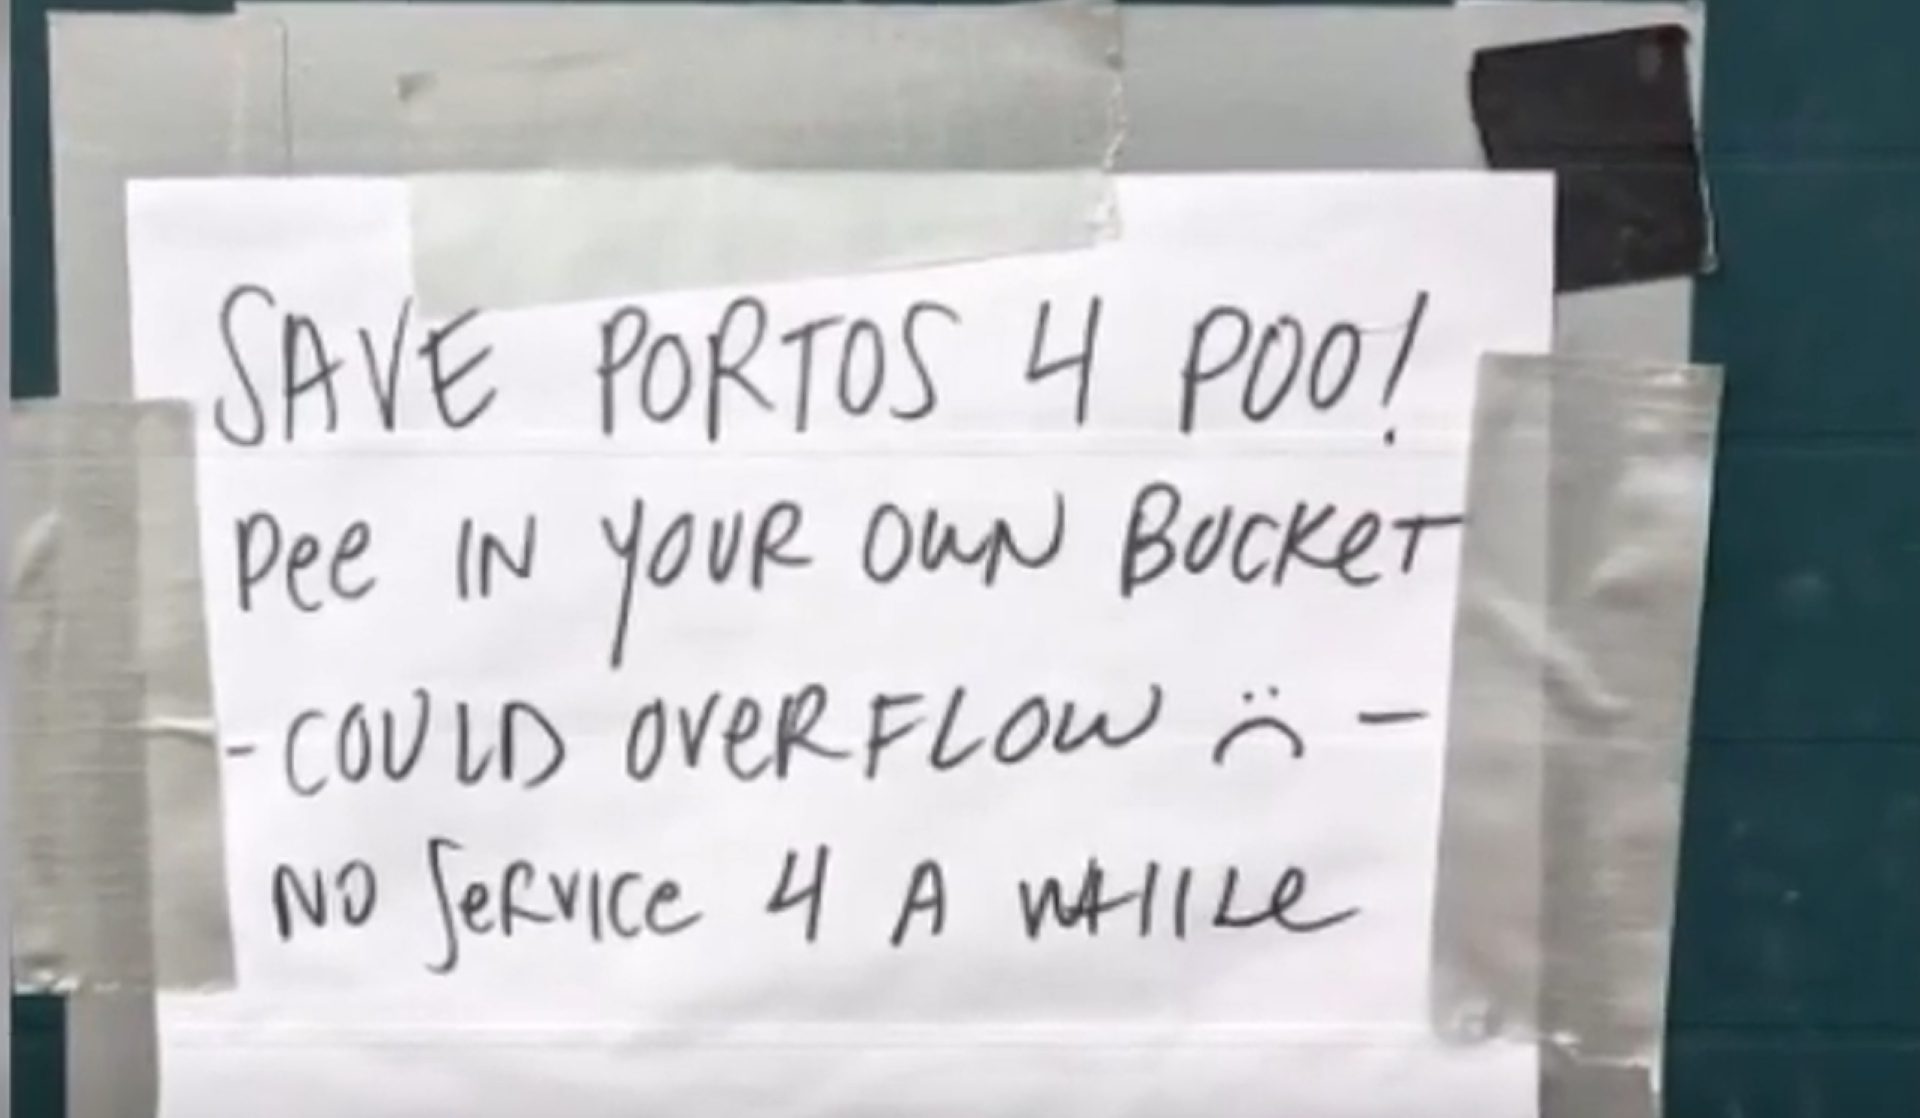 SAVE PORTOS 4 POO!
Pee IN YOUR OWN BUCKeT
- COULD OVeRFLOW :( -
NO SeRVICe 4 A WHILe